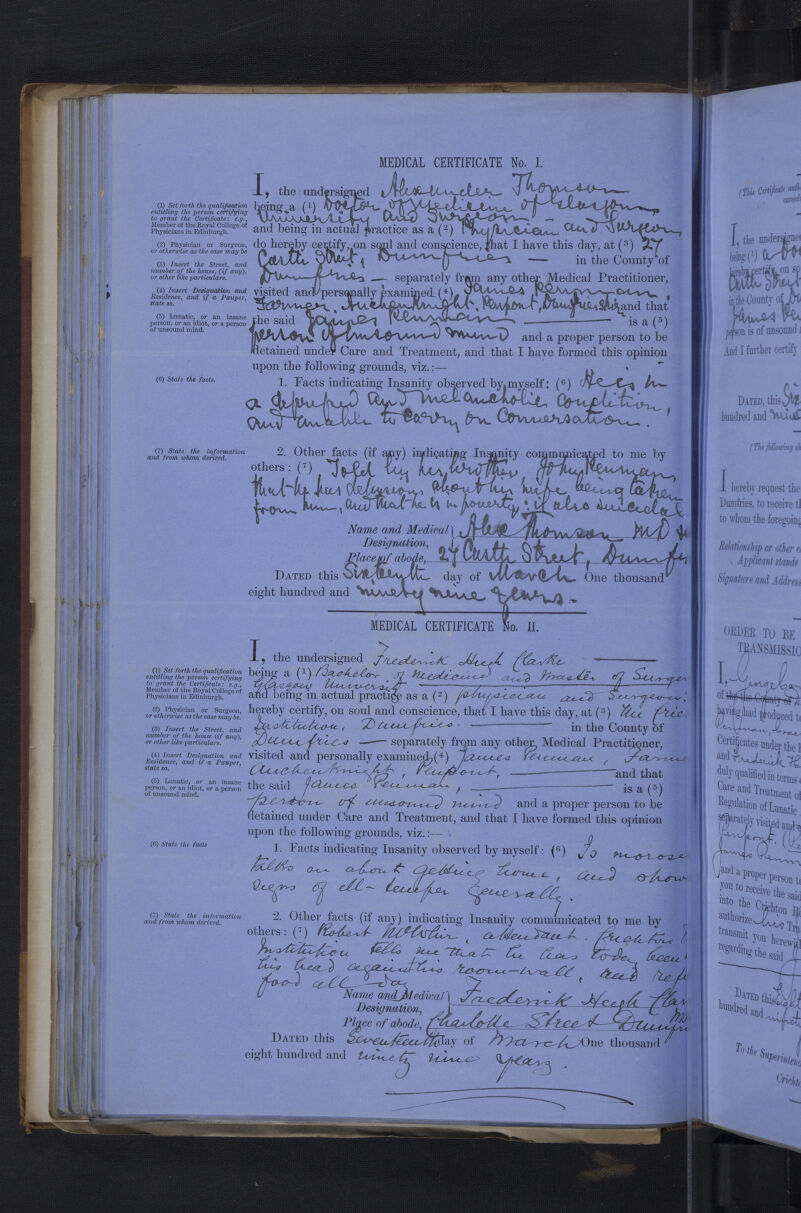 MEDICAL CERTIFICATE No. I.
(1) Set forth the qualification
entitling the person certifying
to grant the Certificate: e.g.,
Member of the Royal College of
Physicians in Edinburgh.
(2) Physician or Surgeon,
or otherwise as the case may be
(3) Insert the Street, and
number of the house, (if any),
or other like particulars.
(4) Insert Designation and
Residence, and if a Pauper,
state so.
(5) Lunatic, or an insane
person, or an idiot, or a person
of unsound mind.
(6) State the facts.
(7) State the information
and from whom derived.
I, the undersigned Alexander Thomson
being a (1) Doctor of Medicine of Glasgow
University and Surgeon
and being in actual practice as a (2) Physician and Surgeon
do hereby certify, on soul and conscience, that I have this day, at (3) 27
Castle Street, Dumfries — in the County of
Dumfries — separately from any other Medical Practitioner,
visited and personally examined, (4) James Penman,
Farmer, Auchenknight, Penpont, Dumfriesshire and that
the said James Penman is a (5)
person of unsound mind and a proper person to be
detained under Care and Treatment, and that I have formed this opinion
upon the following grounds, viz.:—
1. Facts indicating Insanity observed by myself: (6) He is in
a depressed and melancholic condition,
and unable to carry on conversation.
2. Other facts (if any) indicating Insanity communicated to me by
others: (7) Told by his brother John Penman
that he has delusions about his wife being taken
from him, and that he is in poverty: is also suicidal
Name and Medical Designation, Alex Thomson MD
Place of abode, 27 Castle Street, Dumf
DATED this Sixteenth day of March One thousand
eight hundred and ninety nine years.
MEDICAL CERTIFICATE No. II.
(1) Set forth the qualification
entitling the person certifying
to grant the Certificate: e.g.,
Member of the Royal College of
Physicians in Edinburgh.
(2) Physician or Surgeon,
or otherwise as the case may be.
(3) Insert the Street, and
number of the house (if any),
or other like particulars.
(4) Insert Designation and
Residence, and if a Pauper,
state so.
(5) Lunatic, or an insane
person, or an idiot, or a person
of unsound mind.
(6) State the facts
(7) State the information
and from whom derived.
I, the undersigned Frederick Hugh Clarke
being a (1) Bachelor of Medicine and Master of Surge
Glasgow University
and being in actual practice as a (2) physician and Surgeon,
hereby certify, on soul and conscience, that I have this day, at (3) the Cric
Institution, Dumfries. in the County of
Dumfries — separately from any other, Medical Practitioner,
visited and personally examined, (4) James Penman, Farme
Auchenknight, Penpont, and that
the said James Penman, is a (5)
person of unsound mind and a proper person to be
detained under Care and Treatment, and that I have formed this opinion
upon the following grounds, viz.:—
1. Facts indicating Insanity observed by myself: (6) Is morose
talks on about getting home, and show
signs of ill-temper generally.
2. Other facts (if any) indicating Insanity communicated to me by
others: (7) Robert attendant, Crichton
Institution tells me that he has today been
his head against his room-wall, and ref
food all day
Name and Medical Designation, Frederick Hugh Clar
Place of abode, Charlotte Street Dumfri
DATED this Seventeenth day of March One thousand
eight hundred and ninety nine years.
(This Certificate
I, the undersigne
being (1) a
hereby certify, on so
Castle Stree
in the County of
James Pen
person is of unsound
And I further certify
DATED, this Six
hundred and nine
(The following
I hereby request the
Dumfries, to receive t
to whom the foregoing
Relationship or other c
Applicant stands
Signature and Addres
ORDER TO BE
TRANSMISSIO
I, George
of the County of
having had produced t
Penman,
Certificates under the
and Frederick H
duly qualified in terms
Care and Treatment of
Regulation of Lunatic
separately visited and
Penpont.
James Penm
and a proper person t
you to receive the said
into the Crichton R
authorize
transmit you herewit
regarding the said
DATED this
hundred and
To the Superinten
Cricht